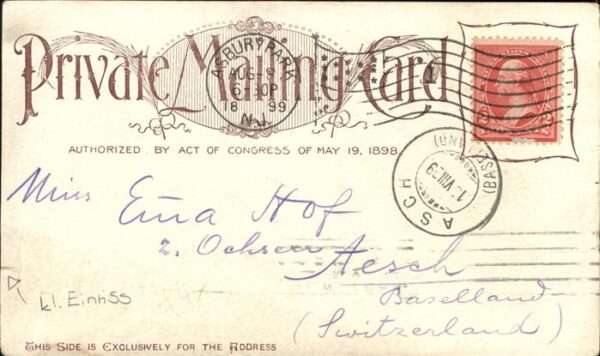 Private Mailing Card
ASBURY PARK
AUG 8
6-30P
18 99
N.J.
1
AUTHORIZED BY ACT OF CONGRESS OF MAY 19, 1898
AESCH
(BASELLAND)
VIII
Miss Ema Hof
z. Ochsen
Aesch
Baselland
(Switzerland)
kl. Einriss
THIS SIDE IS EXCLUSIVELY FOR THE ADDRESS